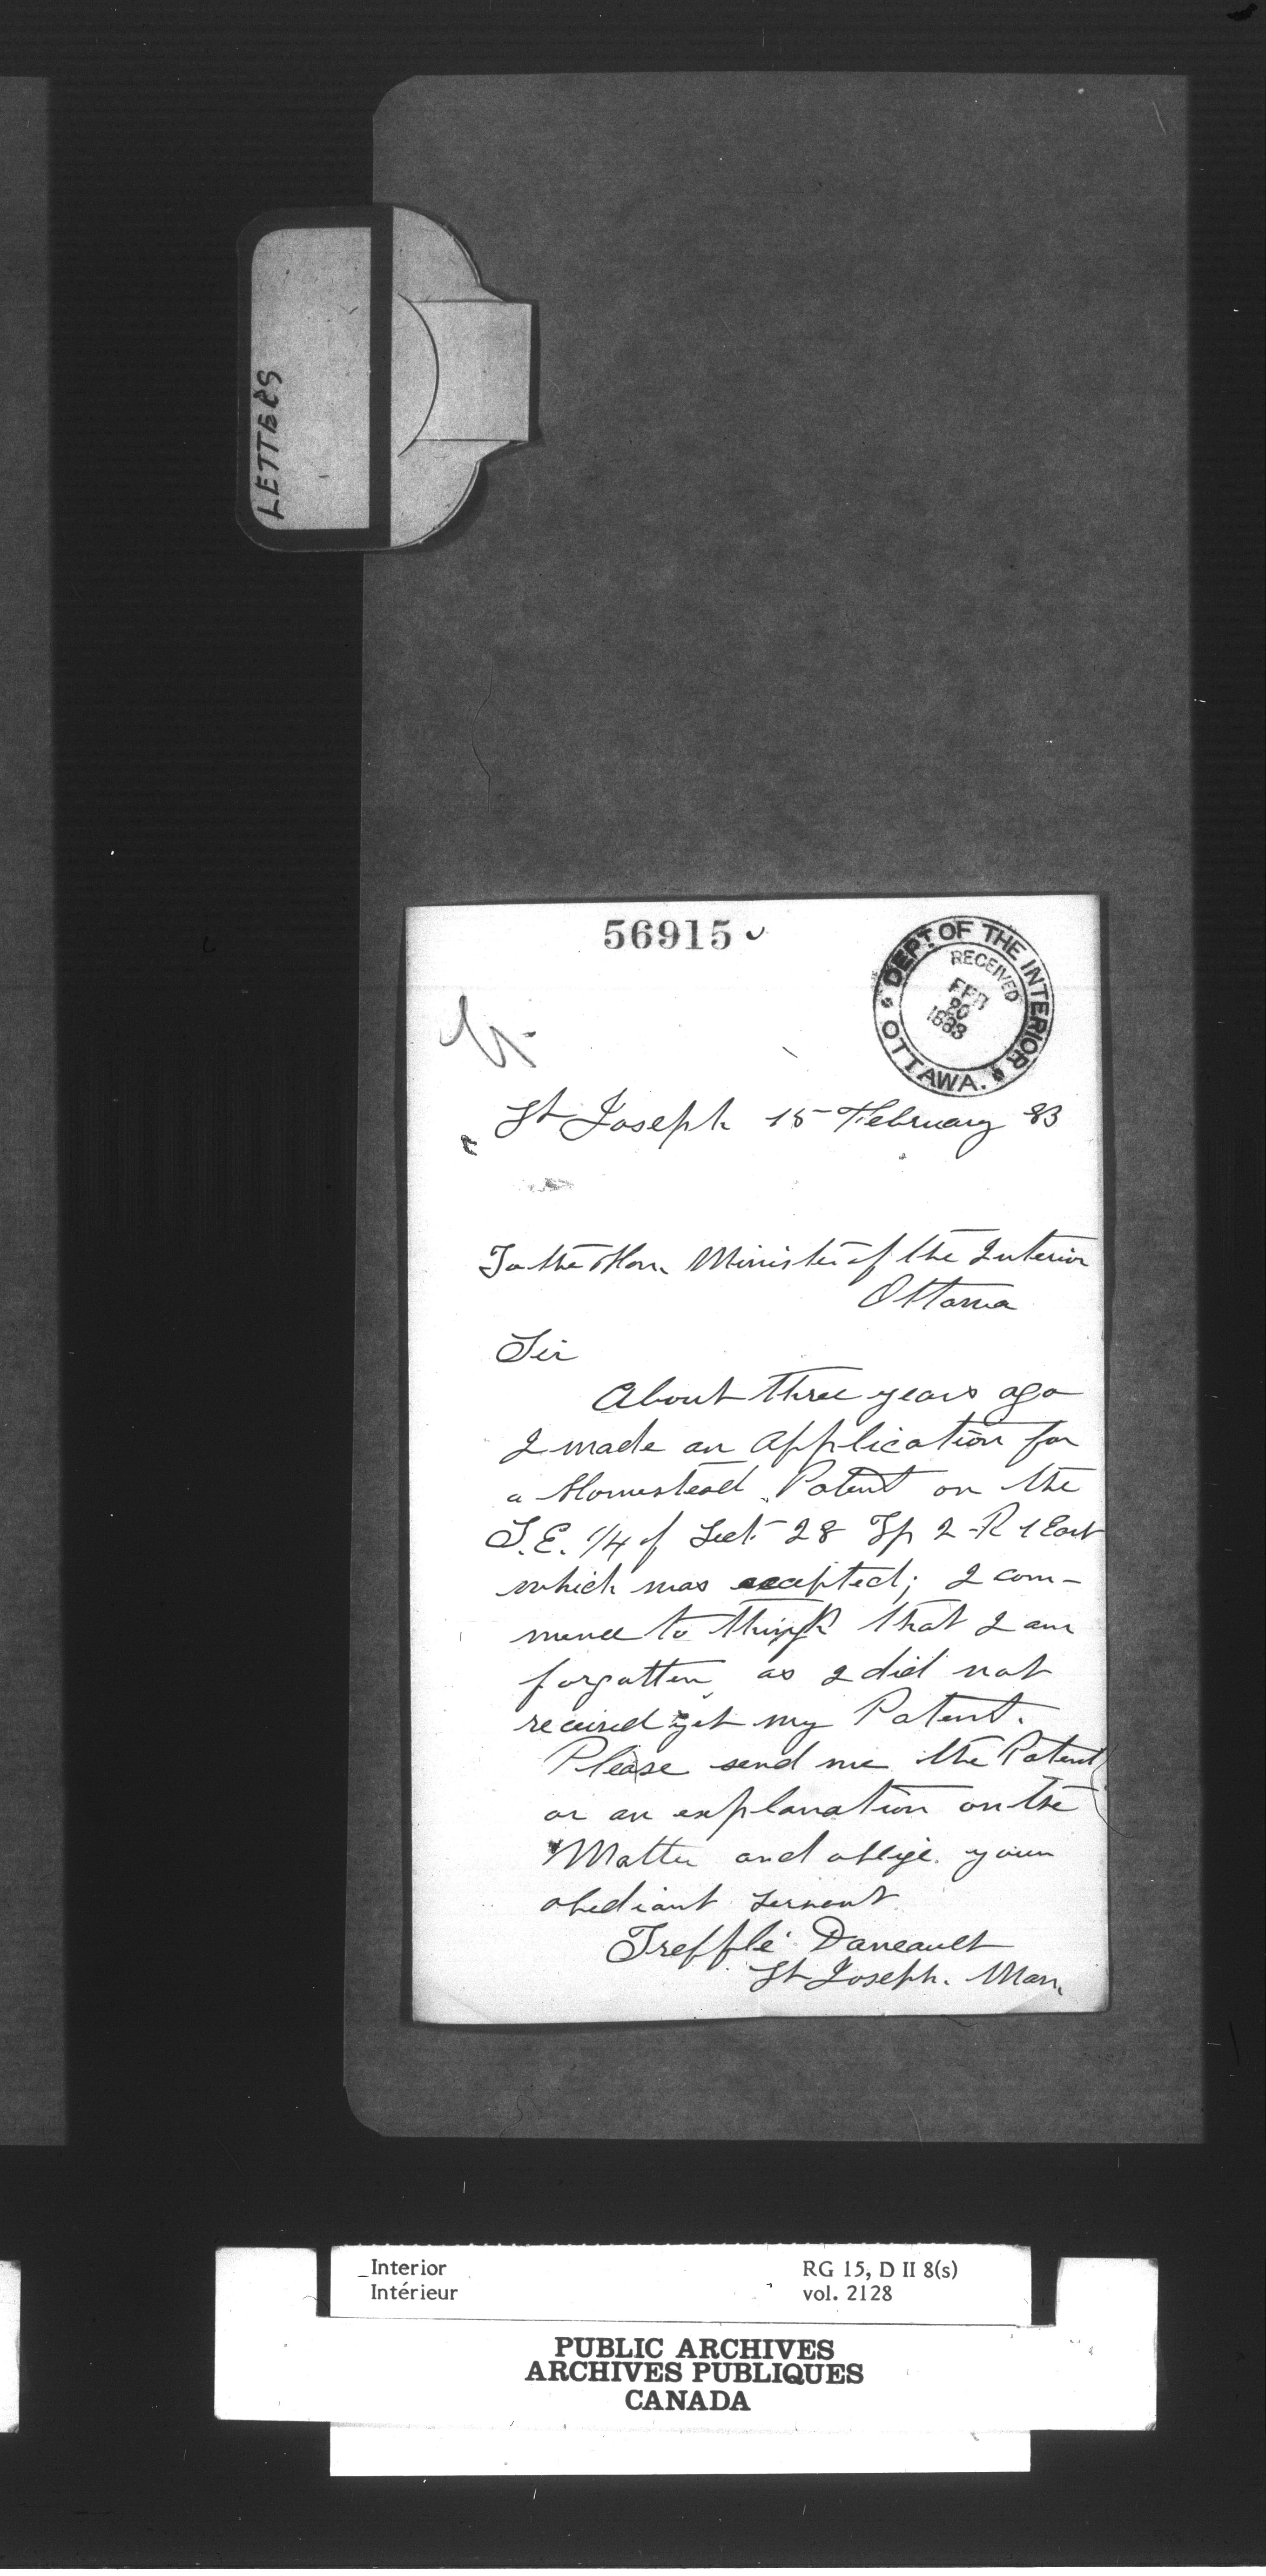 LETTERS
56915
DEPT. OF THE INTERIOR
RECEIVED
FEB
20
1883
OTTAWA.
St Joseph 15 February 83
To the Hon. Minister of the Interior
Ottawa
Sir
About three years ago
I made an application for
a Homestead Patent on the
S.E. 1/4 of Sect. 28 Tp 2 R 1 East
which was accepted; I com-
mence to think that I am
forgotten, as I did not
received yet my Patent.
Please send me the Patent
or an explanation on the
Matter and oblige your
obediant servent
Trefflé Daneault
St Joseph. Man.
Interior
Intérieur
RG 15, D II 8(s)
vol. 2128
PUBLIC ARCHIVES
ARCHIVES PUBLIQUES
CANADA